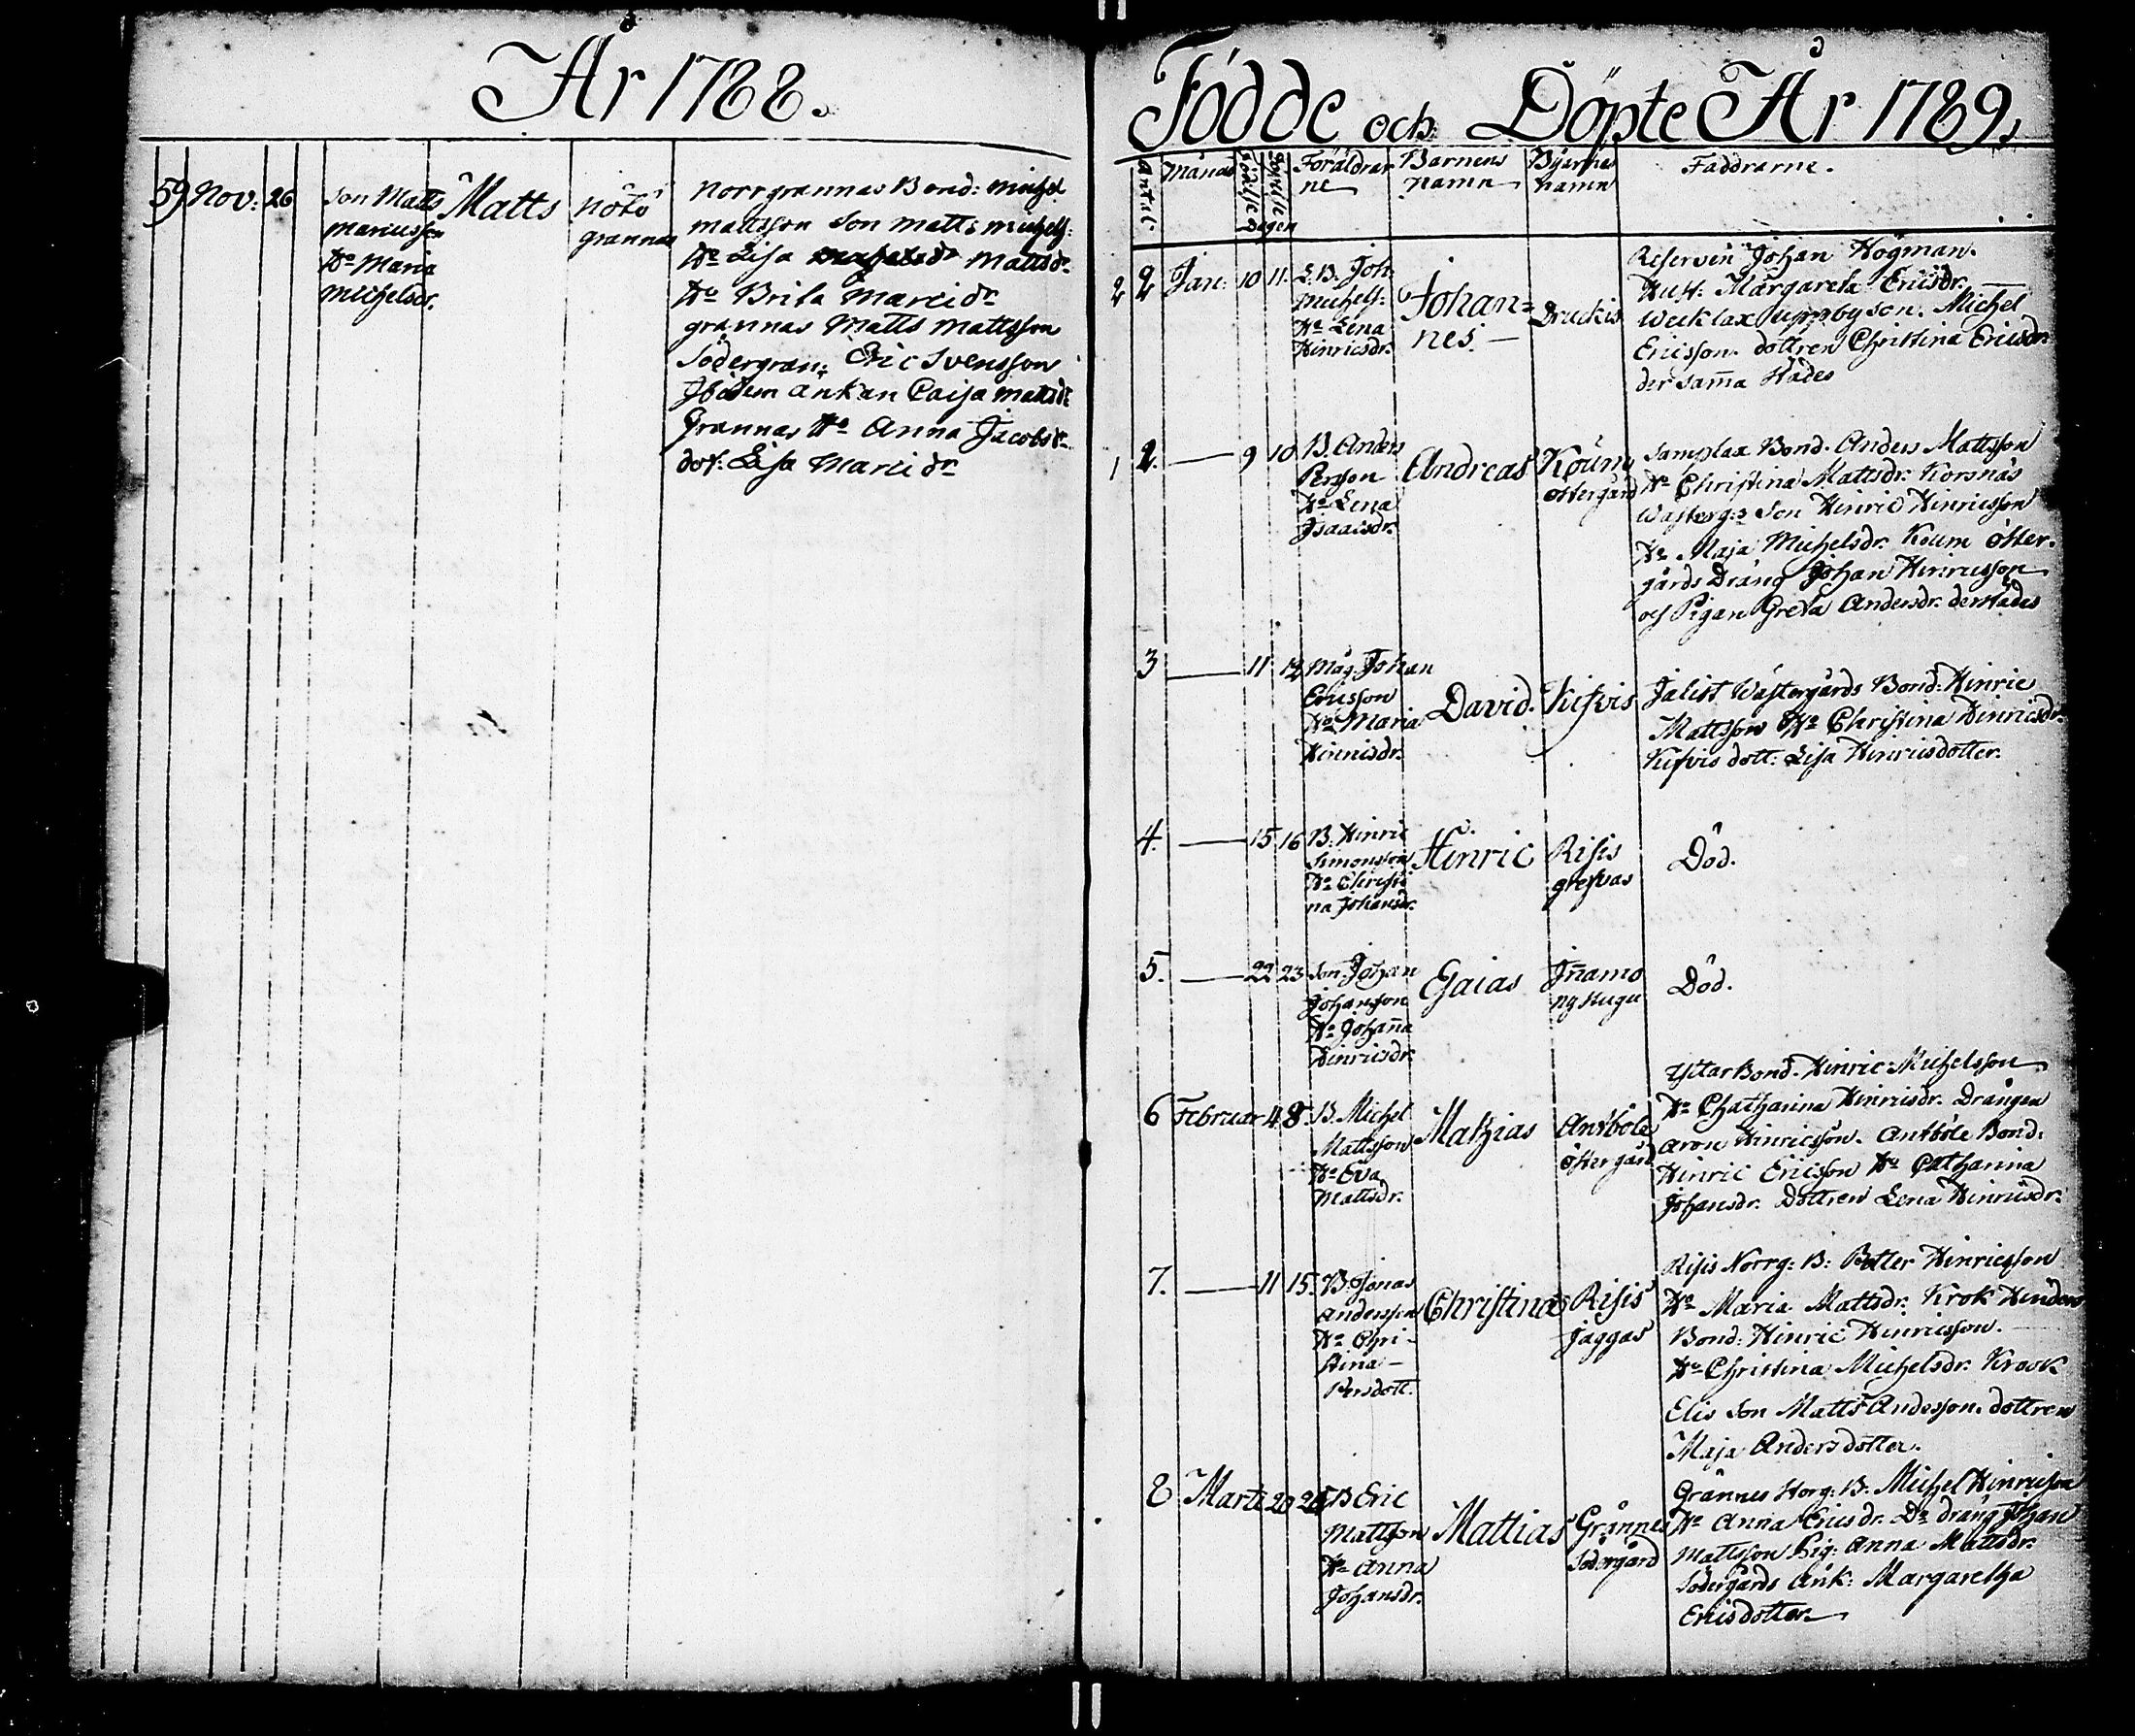 År 1788.
59 Nov: 26
Son Matts
Mariusson
Hº Maria
Michelsdr.
Matts
Nötö
grannas
Norrgrannas Bond: Michel
Mattsson Son Matts Michels:
Hº Lisa Mattsdr
Hº Brita Marcidr
grannas Matts Mattsson
Södergran: Eric Svensson
Ibidem änkan Caisa Mattsdr
Grannas Hº Anna Jacobsdr
dot: Lisa Marcidr
Födde och Döpte År 1789.
Antal.
Månad
Födelse
Döpelse
Dagen
Föräldrar
ne
Barnens
namn
Byarnas
namn
Faddrarne.
2 2 Jan: 10 11.
S.B. Joh:
Michels:
Hº Lena
Hinricsdr.
Johan=
nes. —
Druckis
Reserven Johan Högman.
Hust: Margareta Ericsdr. —
Wecklax uppbyson. Michel
Ericsson. dottren Christina Ericsdr
der samma städes
1 2. — 9 10
B. Anders
Persson
Hº Lena
Isaacsdr.
Andreas
Köurn
östergård
Samplax Bond. Anders Mattsson
Hº Christina Mattsdr. Korsnäs
Wästerg: Son Hinric Hinricsson
Hº Maja Michelsdr. Köurn öster.
gårds Dräng Johan Hinricsson
och Pigan Greta Andersdr. derstädes
3 — 11 12
Måg. Johan
Ericsson
Hº Maria
Hinricsdr.
David.
Kifvis
Jalist Wästergårds Bond: Hinric
Mattsson Hº Christina Hinricsdr.
Kifvis dott: Lisa Hinricsdotter.
4. — 15 16
B: Hinric
Simonsson
Hº Christi
na Johansdr.
Hinric
Risis
grefvas
Död.
5. — 22 23
Son Johan
Johansson
Hº Johanna
Hinricsdr
Esaias
Innamo
nystugu
Död.
6 Februar 4 8.
B. Michel
Mattsson
Hº Eva
Mattsdr.
Mathias
Antböle
östergård
Ytlar Bond. Hinric Michelsson
Hº Chatharina Hinricsdr. Drängen
Aron Hinricsson. Antböle Bond:
Hinric Ericsson Hº Catharina
Johansdr. Dottren Lena Hinricsdr:
7. — 11 15.
B Jonas
Andersson
Hº Chri-
stina —
Persdott.
Christina
Risis
Jaggas
Risis Norrg: B: Petter Hinricsson
Hº Maria Mattsdr. Krok Hinders
Bond: Hinric Hinricsson. —
Hº Christina Michelsdr. Krook
Elis Son Matts Andersson. dottren
Maja Andersdotter.
8 Marti 20
B Eric
Mattsson
Hº Anna
Johansdr.
Mattias
Grännes
Södergård
Grännes Norg: B. Michel Hinricsson
Hº Anna Ericsdr. Dº dräng Johan
Mattsson Pig: Anna Mattsdr.
Södergårds Änk: Margaretha
Ericsdotter. —